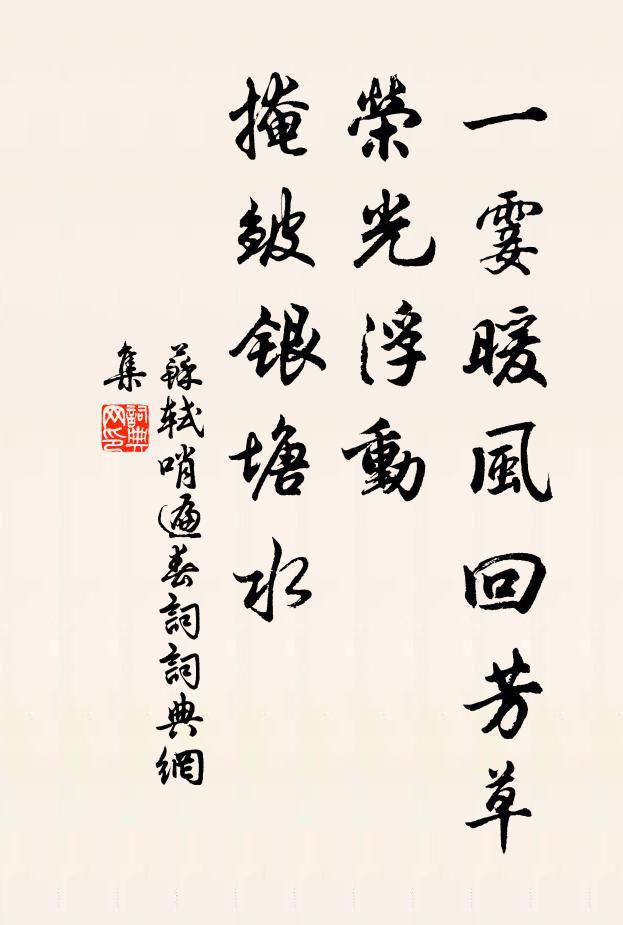 一霎暖風回芳草
榮光浮動
掩皺銀塘水
蘇軾哨遍春詞詞典網
集
詞典
网印